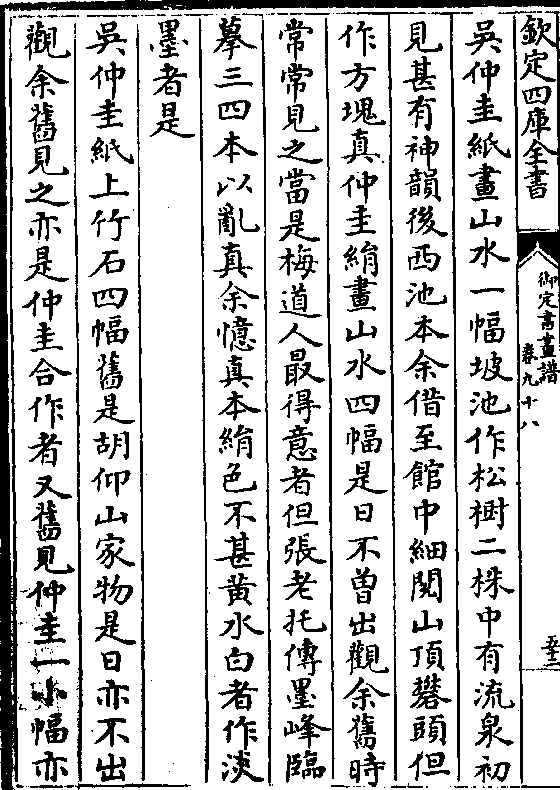 欽定四庫全書
御定書畫譜
卷九十八
吳仲圭紙畫山水一幅坡池作松樹二株中有流泉初
見甚有神韻後西池本余借至館中細閱山頂礬頭但
作方塊真仲圭絹畫山水四幅是日不曾出觀余舊時
常常見之當是梅道人最得意者但張老托傳墨峰臨
摹三四本以亂真余憶真本絹色不甚黃水白者作淡
墨者是
吳仲圭紙上竹石四幅舊是胡仰山家物是日亦不出
觀余舊見之亦是仲圭合作者又舊見仲圭一小幅亦